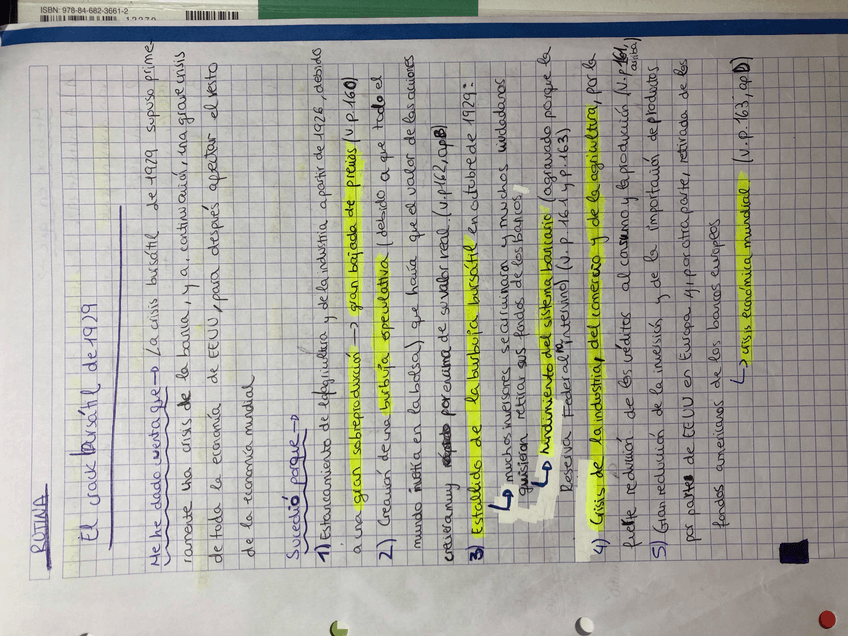 ISBN: 978-84-682-3661-2
RUTINA
El crack bursátil de 1929
Me he dado cuenta que → La crisis bursátil de 1929 supuso prime-
ramente una crisis de la banca, y a continuación, una grave crisis
de toda la economía de EEUU, para después afectar el resto
de la economía mundial
Sucedió porque →
1) Estancamiento de la agricultura y de la industria a partir de 1926, debido
a una gran sobreproducción → gran bajada de precios (v.p. 160)
2) Creación de una burbuja especulativa (debido a que todo el
mundo metía en la bolsa) que hacía que el valor de las acciones
creciera muy por encima de su valor real. (v.p 162, ap B)
3) Estallido de la burbuja bursátil en octubre de 1929:
↳ muchos inversores se arruinaron y muchos ciudadanos
quisieron retirar sus fondos de los bancos,
↳ hundimiento del sistema bancario (agravado porque la
Reserva Federal no intervino) (v. p. 161 y p. 163)
4) Crisis de la industria, del comercio y de la agricultura, por la
fuerte reducción de los créditos al consumo y la producción (v.p 161, arriba)
5) Gran reducción de la inversión y de la importación de productos
por parte de EEUU en Europa y, por otra parte, retirada de los
fondos americanos de los bancos europeos
↳ crisis económica mundial. (v.p. 163, ap D)